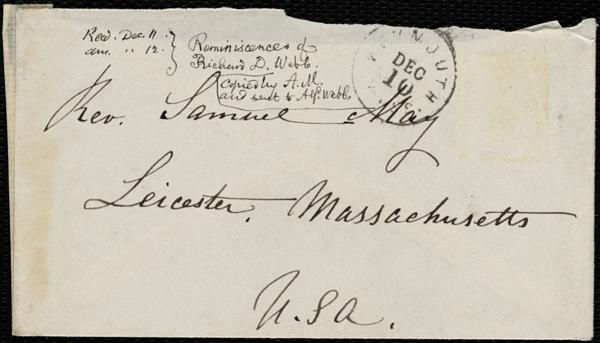 Recd. Dec. 11
ans. " 12.
Reminiscences of
Richard D. Webb.
Copied by A.M.
and sent to Alf. Webb.
DEC
10
Rev. Samuel May
Leicester, Massachusetts
U.S.A.